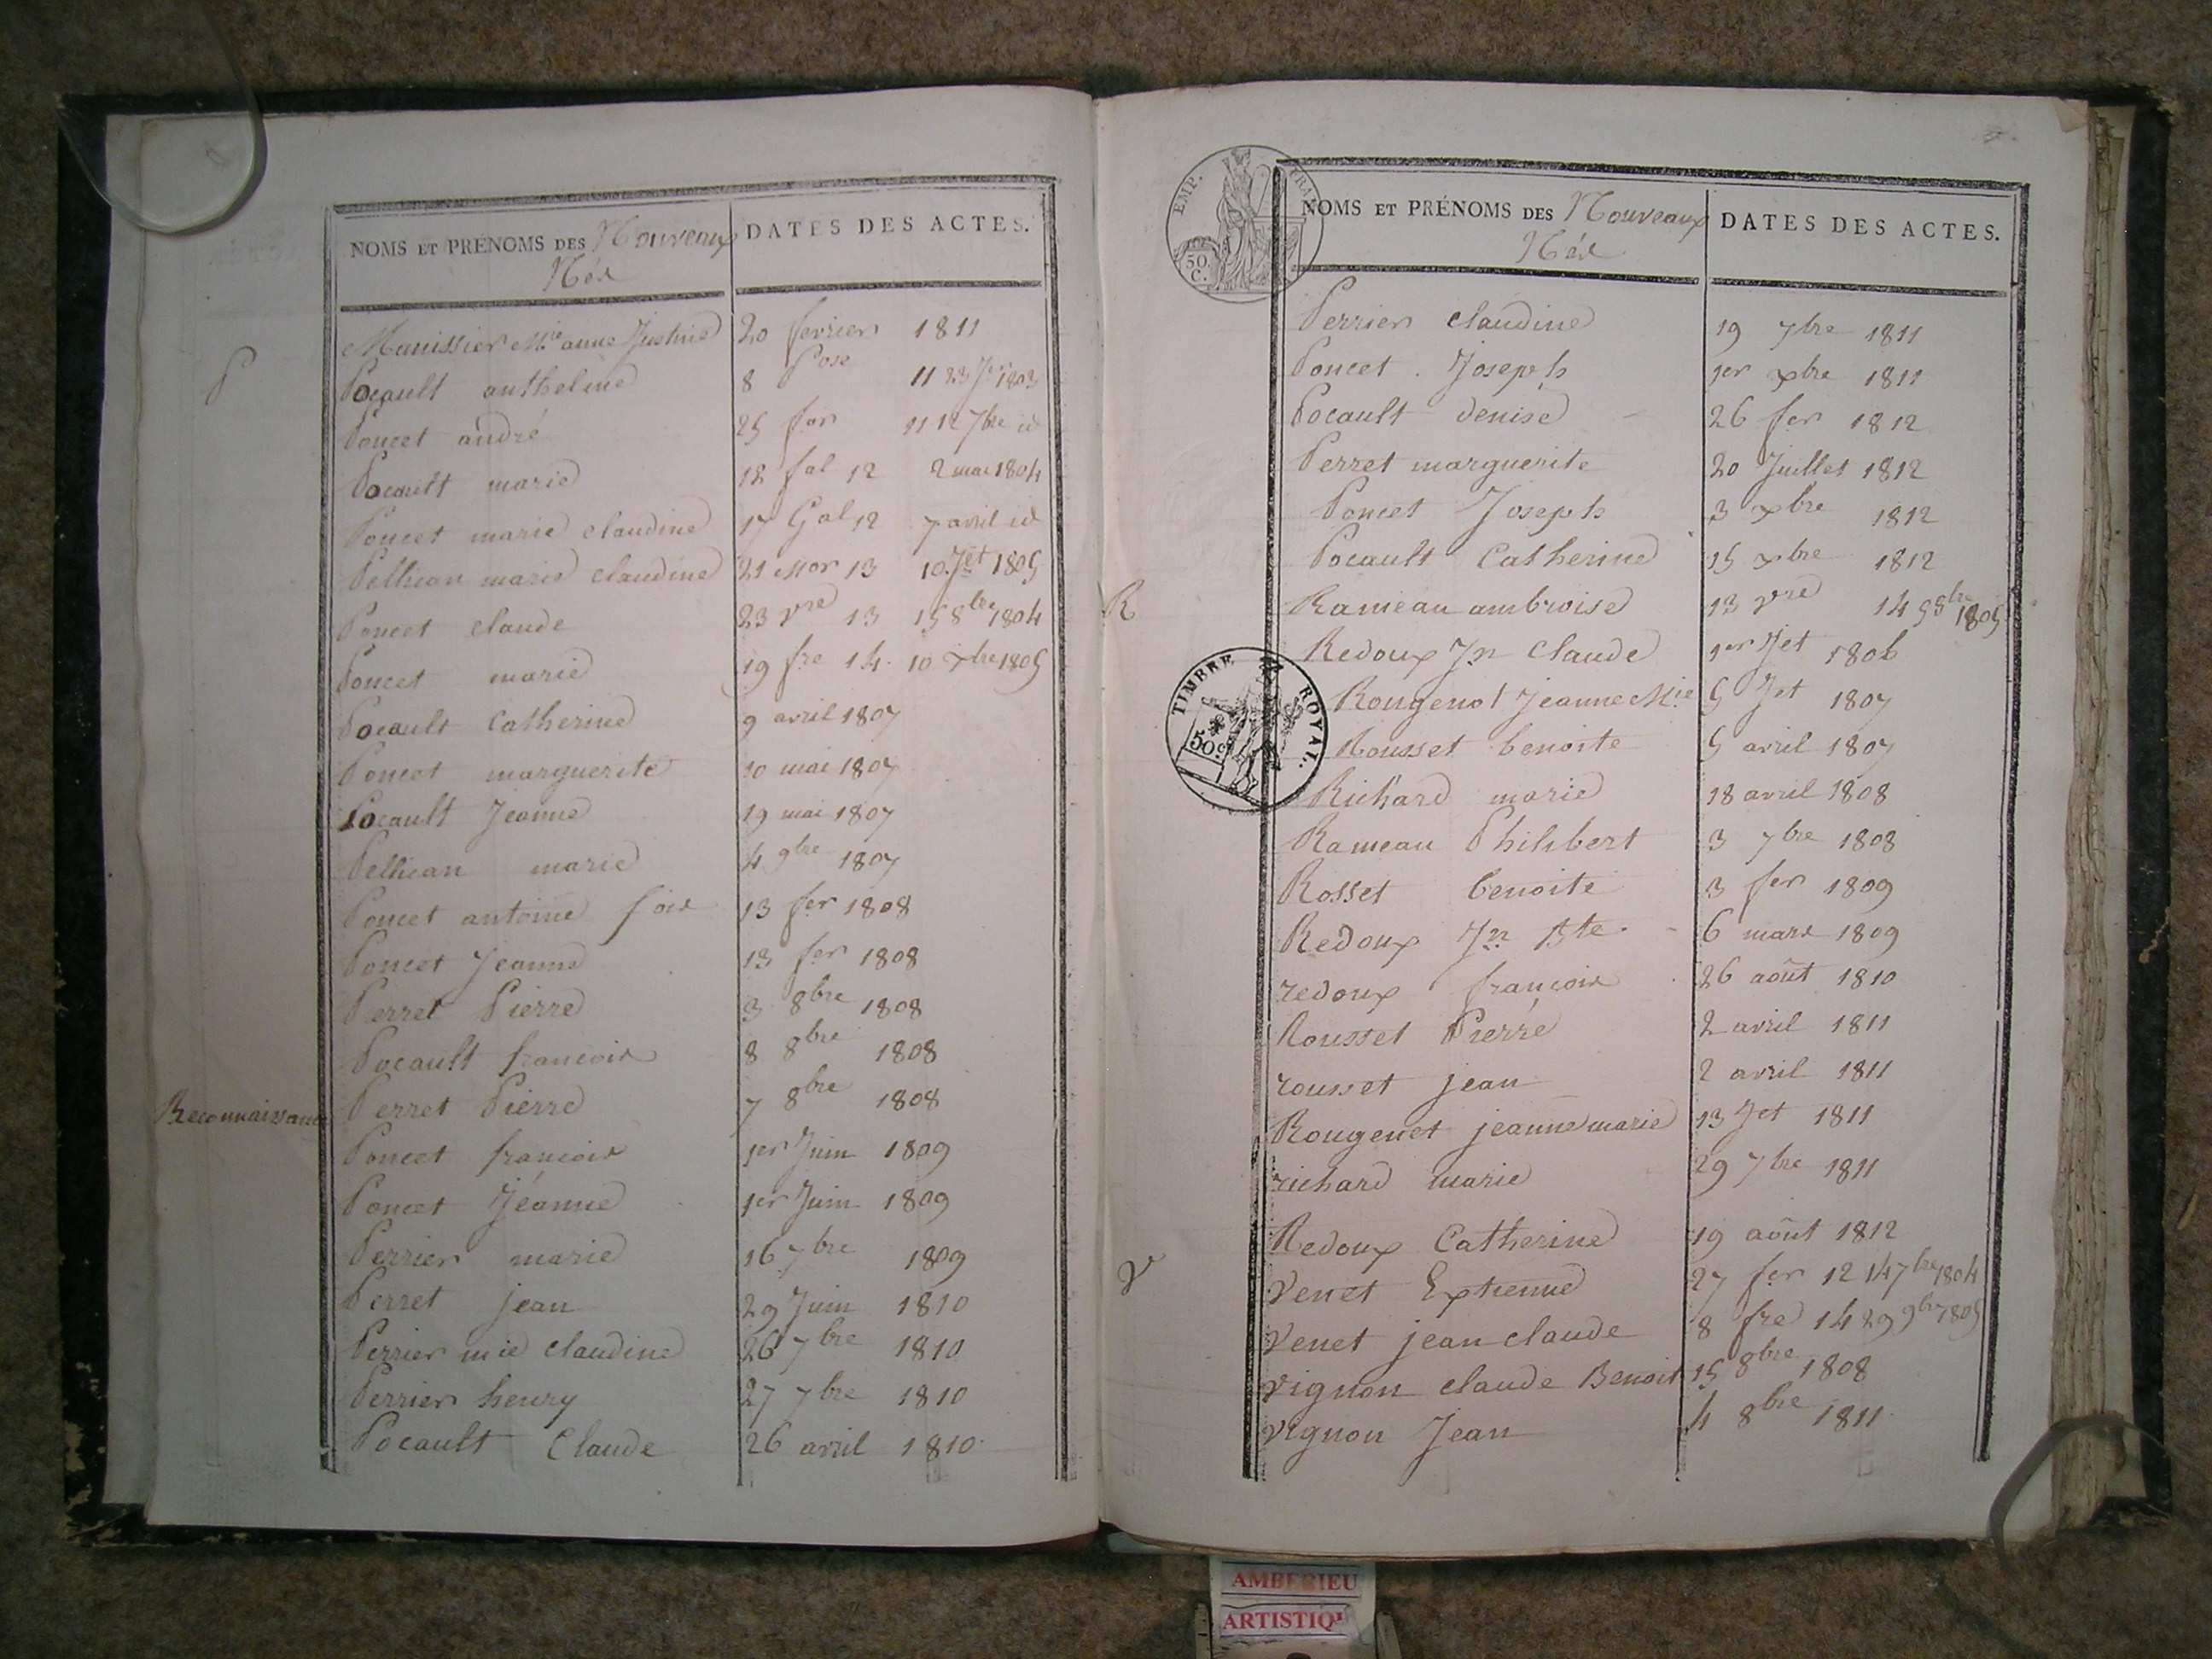 NOMS ET PRÉNOMS DES Nouveaux Nés
DATES DES ACTES.
Manissier Mie anne Justine 20 fevrier 1811
P
Pocault anthelme 8 11 23 1803
Poncet andré 25 for 11 12 7bre id
Pocault marie 12 fal 12 2 mai 1804
Poncet marie claudine 17 Gal 12 7 avril id
Pelhian marie claudine 21 Mor 13 10 Jet 1805
Poncet claude 23 vre 13 15 8bre 1804
Poncet marie 19 fre 14 10 xbre 1805
Pocault Catherine 9 avril 1807
Poncet marguerite 10 mai 1807
Pocault Jeanne 19 mai 1807
Pelhian marie 4 9bre 1807
Poncet antoine fois 13 fer 1808
Poncet Jeanne 13 fer 1808
Perret Pierre 3 8bre 1808
Pocault francois 8 8bre 1808
Reconnaissance Perret Pierre 7 8bre 1808
Poncet francois 1er Juin 1809
Poncet Jéanne 1er Juin 1809
Perrier marie 16 7bre 1809
Perret jean 29 Juin 1810
Perrier mie Claudine 26 7bre 1810
Perrier henry 27 7bre 1810
Pocault Claude 26 avril 1810
EMP. FRAN
50 C.
NOMS ET PRÉNOMS DES Nouveaux Nés
DATES DES ACTES.
Perrier claudine 19 7bre 1811
Poncet Joseph 1er xbre 1811
Pocault denise 26 fer 1812
Perret marguerite 20 Juillet 1812
Poncet Joseph 3 xbre 1812
Pocault Catherine 15 xbre 1812
R
Rameau ambroise 13 vre 14 1805
Redoux Jn Claude 1er Jet 1806
TIMBRE ROYAL.
50c
Rougenot Jeanne Mie 5 Jet 1807
Rousset benoite 5 avril 1807
Richard marie 18 avril 1808
Rameau Philibert 3 7bre 1808
Rosset benoite 3 fer 1809
Redoux Jn Bte 6 mars 1809
redoux françois 26 août 1810
Rousset Pierre 2 avril 1811
rousset jean 2 avril 1811
Rougenet jeanne marie 13 Jet 1811
richard marie 29 7bre 1811
Redoux Catherine 19 août 1812
V
Venet Extienne 27 fer 12 14 7bre 1804
Venet jean claude 8 fre 14 29 9bre 1805
vignon claude Benoit 15 8bre 1808
vignon Jean 4 8bre 1811
AMBERIEU
ARTISTIQ